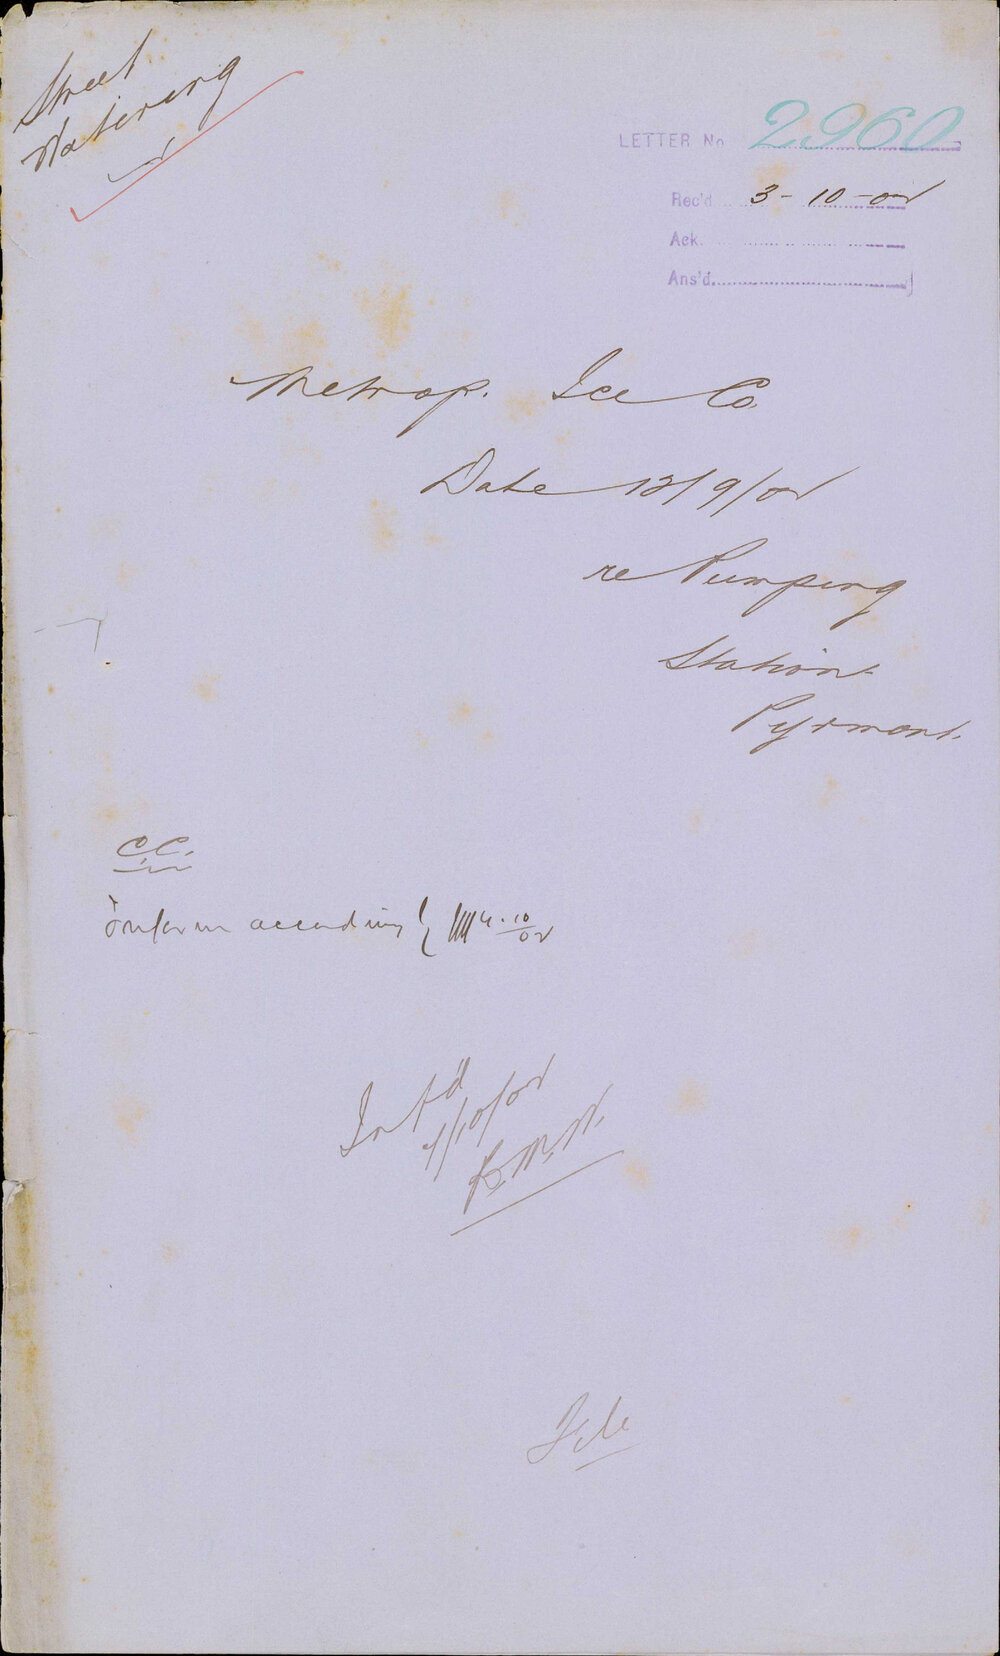 Street
Watering
LETTER No 2960
Rec'd 3-10-02
Ack.
Ans'd.
Metrop. Ice Co.
Date 12/9/02
re Pumping
Station
Pyrmont.
C.C.
Inform accordingly 4.10/02
Inf'd
7/10/02
File